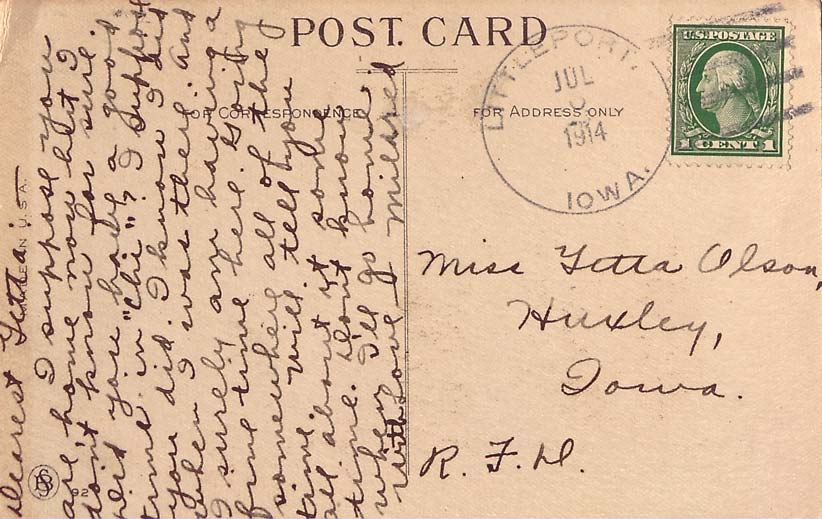 POST CARD
FOR CORRESPONDENCE
FOR ADDRESS ONLY
LITTLEPORT.
JUL
1914
IOWA.
U.S. POSTAGE
1 CENT 1
Miss Tetta Olson,
Huxley,
Iowa.
R. F. D.
Dearest Tetta:
I suppose you
are home now but I
don't know for sure.
Did you have a good
time in "Chi"? I suppose
you did. I know I did
when I was there. And
I surely am having a
fine time here. Going
somewhere all of the
time. Will tell you
all about it some
time. Don't know
when I'll go home
With Love Mildred
IN U.S.A.